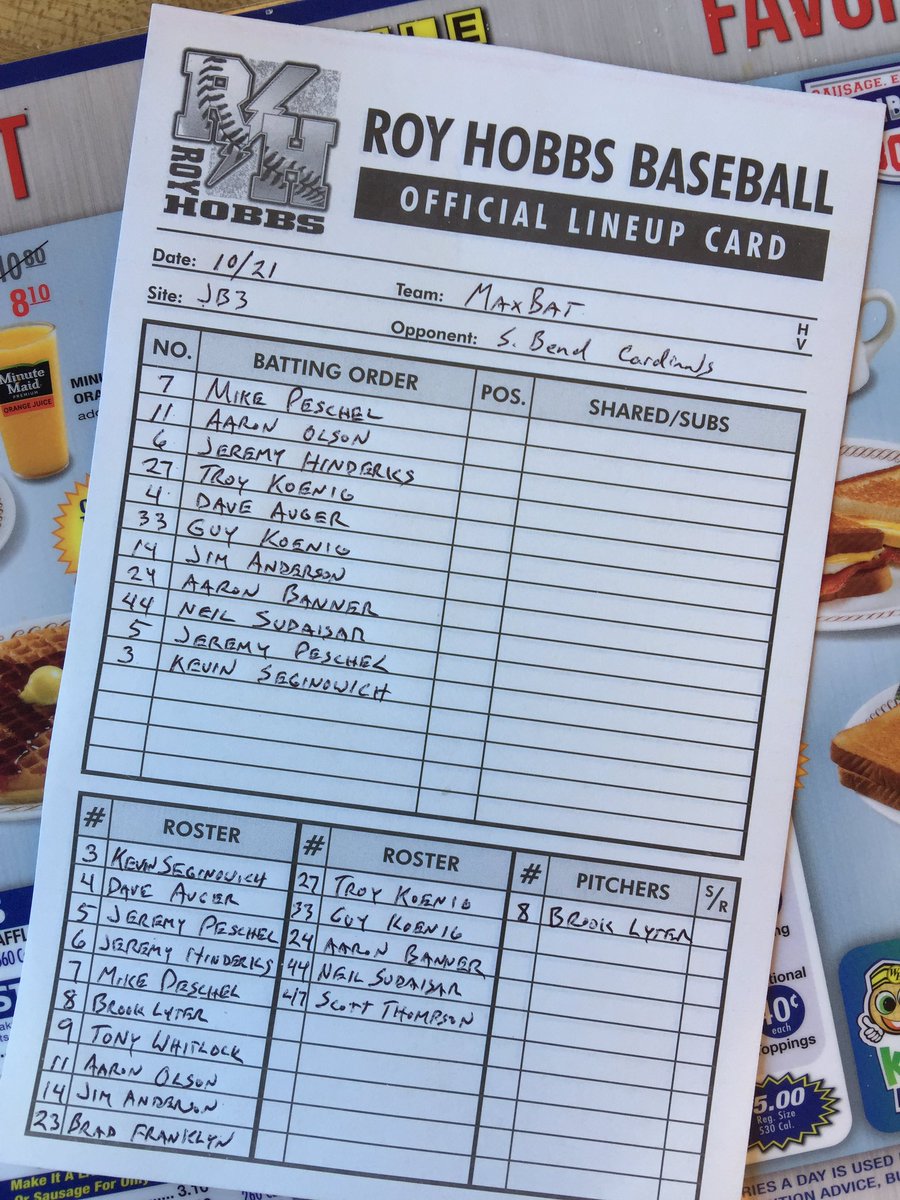 FAVO
T
10 80
8 10
Minute Maid
PREMIUM
ORANGE JUICE
SAUSAGE, E
RH
ROY HOBBS
ROY HOBBS BASEBALL
OFFICIAL LINEUP CARD
Date: 10/21 Team: MAXBAT H
Site: JB3 Opponent: S. Bend Cardinals V
NO. BATTING ORDER POS. SHARED/SUBS
7 MIKE PESCHEL
11 AARON OLSON
6 JEREMY HINDERKS
27 TROY KOENIG
4 DAVE AUGER
33 GUY KOENIG
14 JIM ANDERSON
24 AARON BANNER
44 NEIL SUDAISAR
5 JEREMY PESCHEL
3 KEVIN SEGINOWICH
# ROSTER # ROSTER # PITCHERS S/R
3 KEVIN SEGINOWICH 27 TROY KOENIG 8 BROOK LYTER
4 DAVE AUGER 33 GUY KOENIG
5 JEREMY PESCHEL 24 AARON BANNER
6 JEREMY HINDERKS 44 NEIL SUDAISAR
7 MIKE PESCHEL 47 SCOTT THOMPSON
8 BROOK LYTER
9 TONY WHITLOCK
11 AARON OLSON
14 JIM ANDERSON
23 BRAD FRANKLYN
40¢
each
oppings
5.00
Reg. Size
530 Cal.
Make It A
Or Sausage For Only
3.10
RIES A DAY IS USED
TION ADVICE, BU